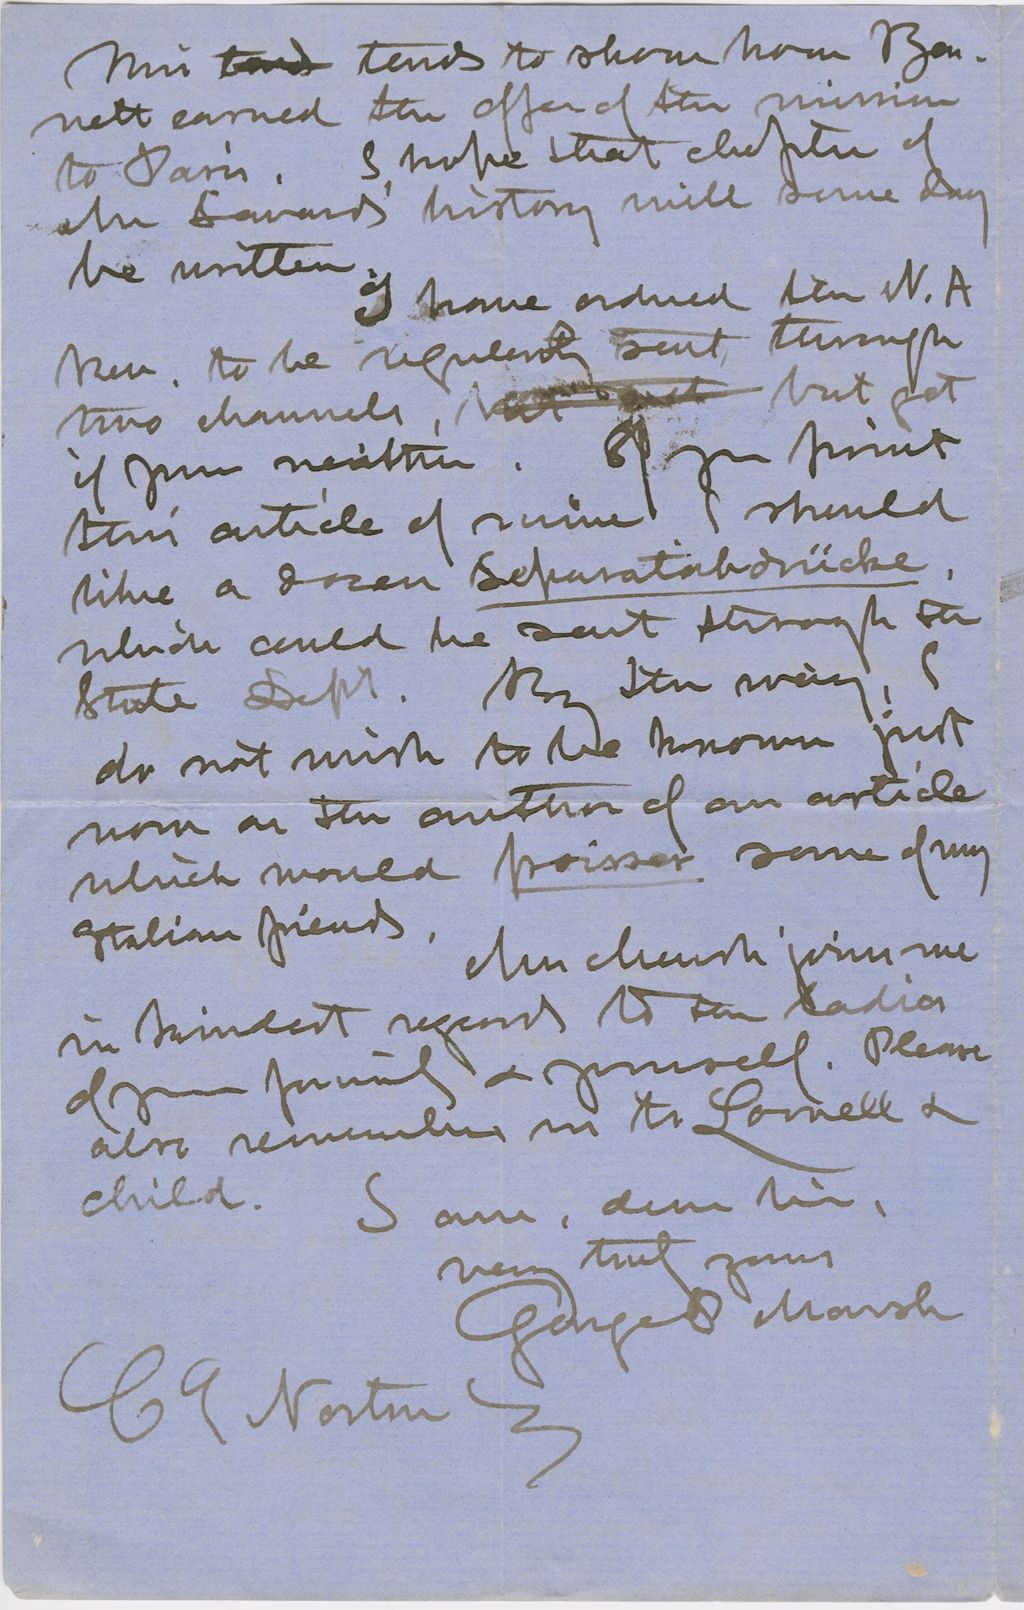 This tends tends to show how Ben-
nett earned the offer of the mission
to Paris. I hope that chapter of
Mr Seward's history will some day
be written.
I have ordered the N. A
Rev. to be regularly sent through
two channels, but get
if from neither. If you print
this article of mine I should
like a dozen Separatabdrücke,
which could be sent through the
State Dept. By the way, I
do not wish to be known just
now as the author of an article
which would froisser some of my
Italian friends.
Mrs Marsh joins me
in kindest regards to the ladies
of your family & yourself. Please
also remember me to Lowell &
child. I am, dear Sir,
very truly yours
George P Marsh
C E Norton